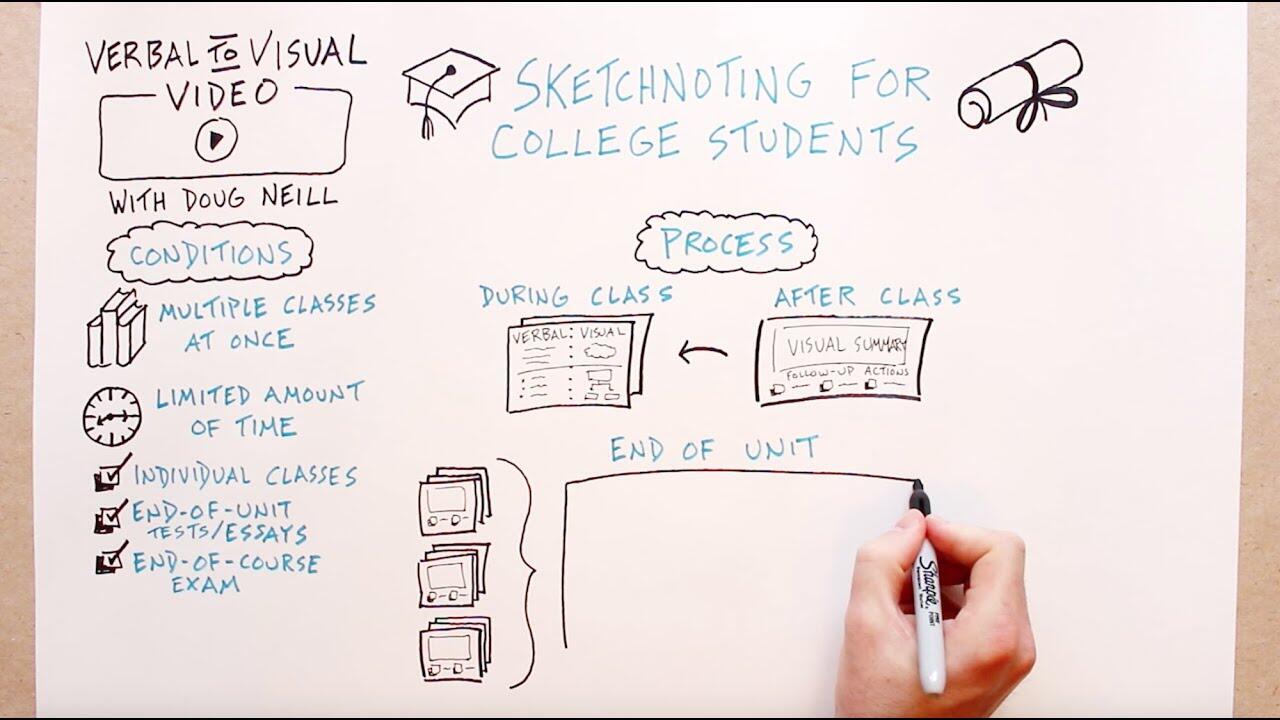 VERBAL TO VISUAL
VIDEO
WITH DOUG NEILL
SKETCHNOTING FOR
COLLEGE STUDENTS
CONDITIONS
MULTIPLE CLASSES
AT ONCE
LIMITED AMOUNT
OF TIME
INDIVIDUAL CLASSES
END-OF-UNIT
TESTS/ESSAYS
END-OF-COURSE
EXAM
PROCESS
DURING CLASS
VERBAL VISUAL
AFTER CLASS
VISUAL SUMMARY
FOLLOW-UP ACTIONS
END OF UNIT
Sharpie